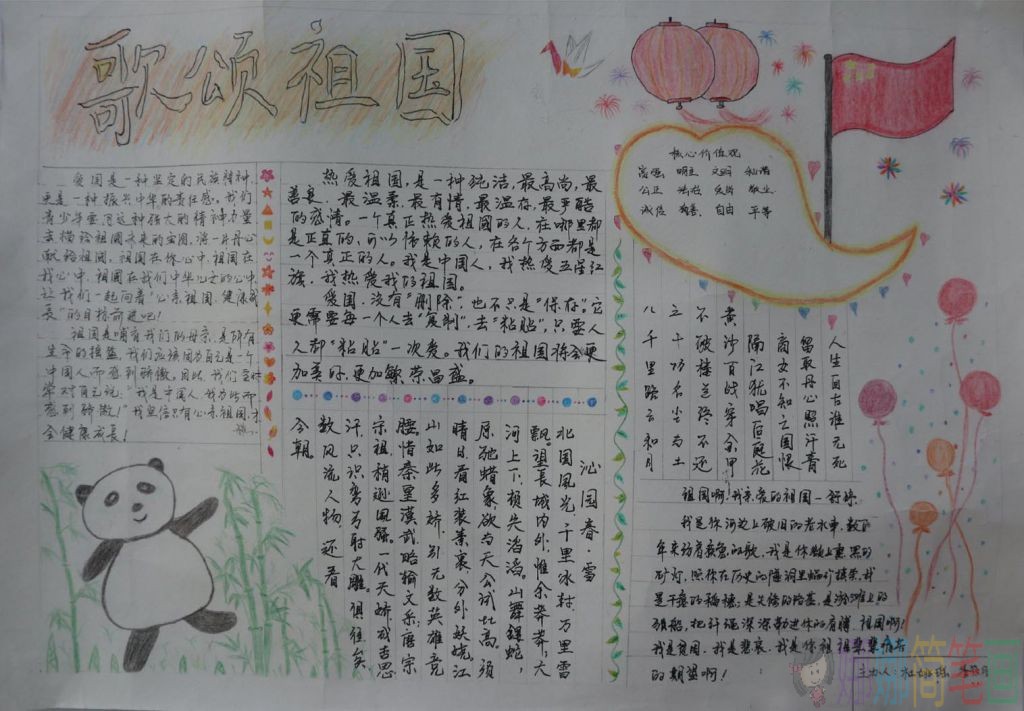 歌颂祖国
爱国是一种坚定的民族精神,
更是一种振兴中华的责任感。我们
祖国是哺育我们的母亲,是所有
中国人而感到骄傲。因此,我们会时
常对自己说:“我是中国人,我为此而
感到骄傲!”我坚信只有心系祖国,才
会健康成长!
热爱祖国,是一种纯洁,最高尚,最
善良,最温柔,最有情,最温存,最严酷
的感情。一个真正热爱祖國的人,在哪里都
是正真的,可以信赖的人,在各个方面都是
一个真正的人。我是中国人,我热爱五星红
旗,我热爱我的祖国。
爱国,没有“删除”,也不只是“保存”。它
更需要每一个人去“复制”,去“粘贴”,只要人
人都“粘贴”一次爱。我们的祖国将会更
加美好,更加繁荣昌盛。
核心价值观
富强 明主 文明 和谐
公正 法治 爱岗 敬业
诚信 友善 自由 平等
人生自古谁无死
留取丹心照汗青
商女不知亡国恨
隔江犹唱后庭花
黄沙百战穿金甲
不破楼兰终不还
三十功名尘与土
八千里路云和月
沁园春·雪
北国風光千里冰封,万里雪
飘。望長城内外,惟余莽莽,大
河上下,顿失滔滔。山舞銀蛇,
原驰蜡象,欲与天公试比高。须
晴日,看红装素裹,分外妖娆。江
山如此多娇,引无数英雄竞
腰。惜秦皇漢武,略输文采,唐宗
宋祖,稍逊風骚。一代天骄,成吉思
汗,只识弯弓射大雕。俱往矣,
数风流人物,还看
今朝。
祖国啊!我亲爱的祖国—舒婷
我是你河边上破旧的老水車,数百
年来纺着疲惫的歌,我是你额上熏黑的
矿灯,照你在历史的隧洞里蜗行摸索,我
是干瘪的稻穗;是失修的路基,是淤滩上的
驳船,把纤绳深深勒进你的肩膊,祖国啊!
我是贫困,我是悲哀,我是你祖祖辈辈痛苦
的期望啊!
简笔画